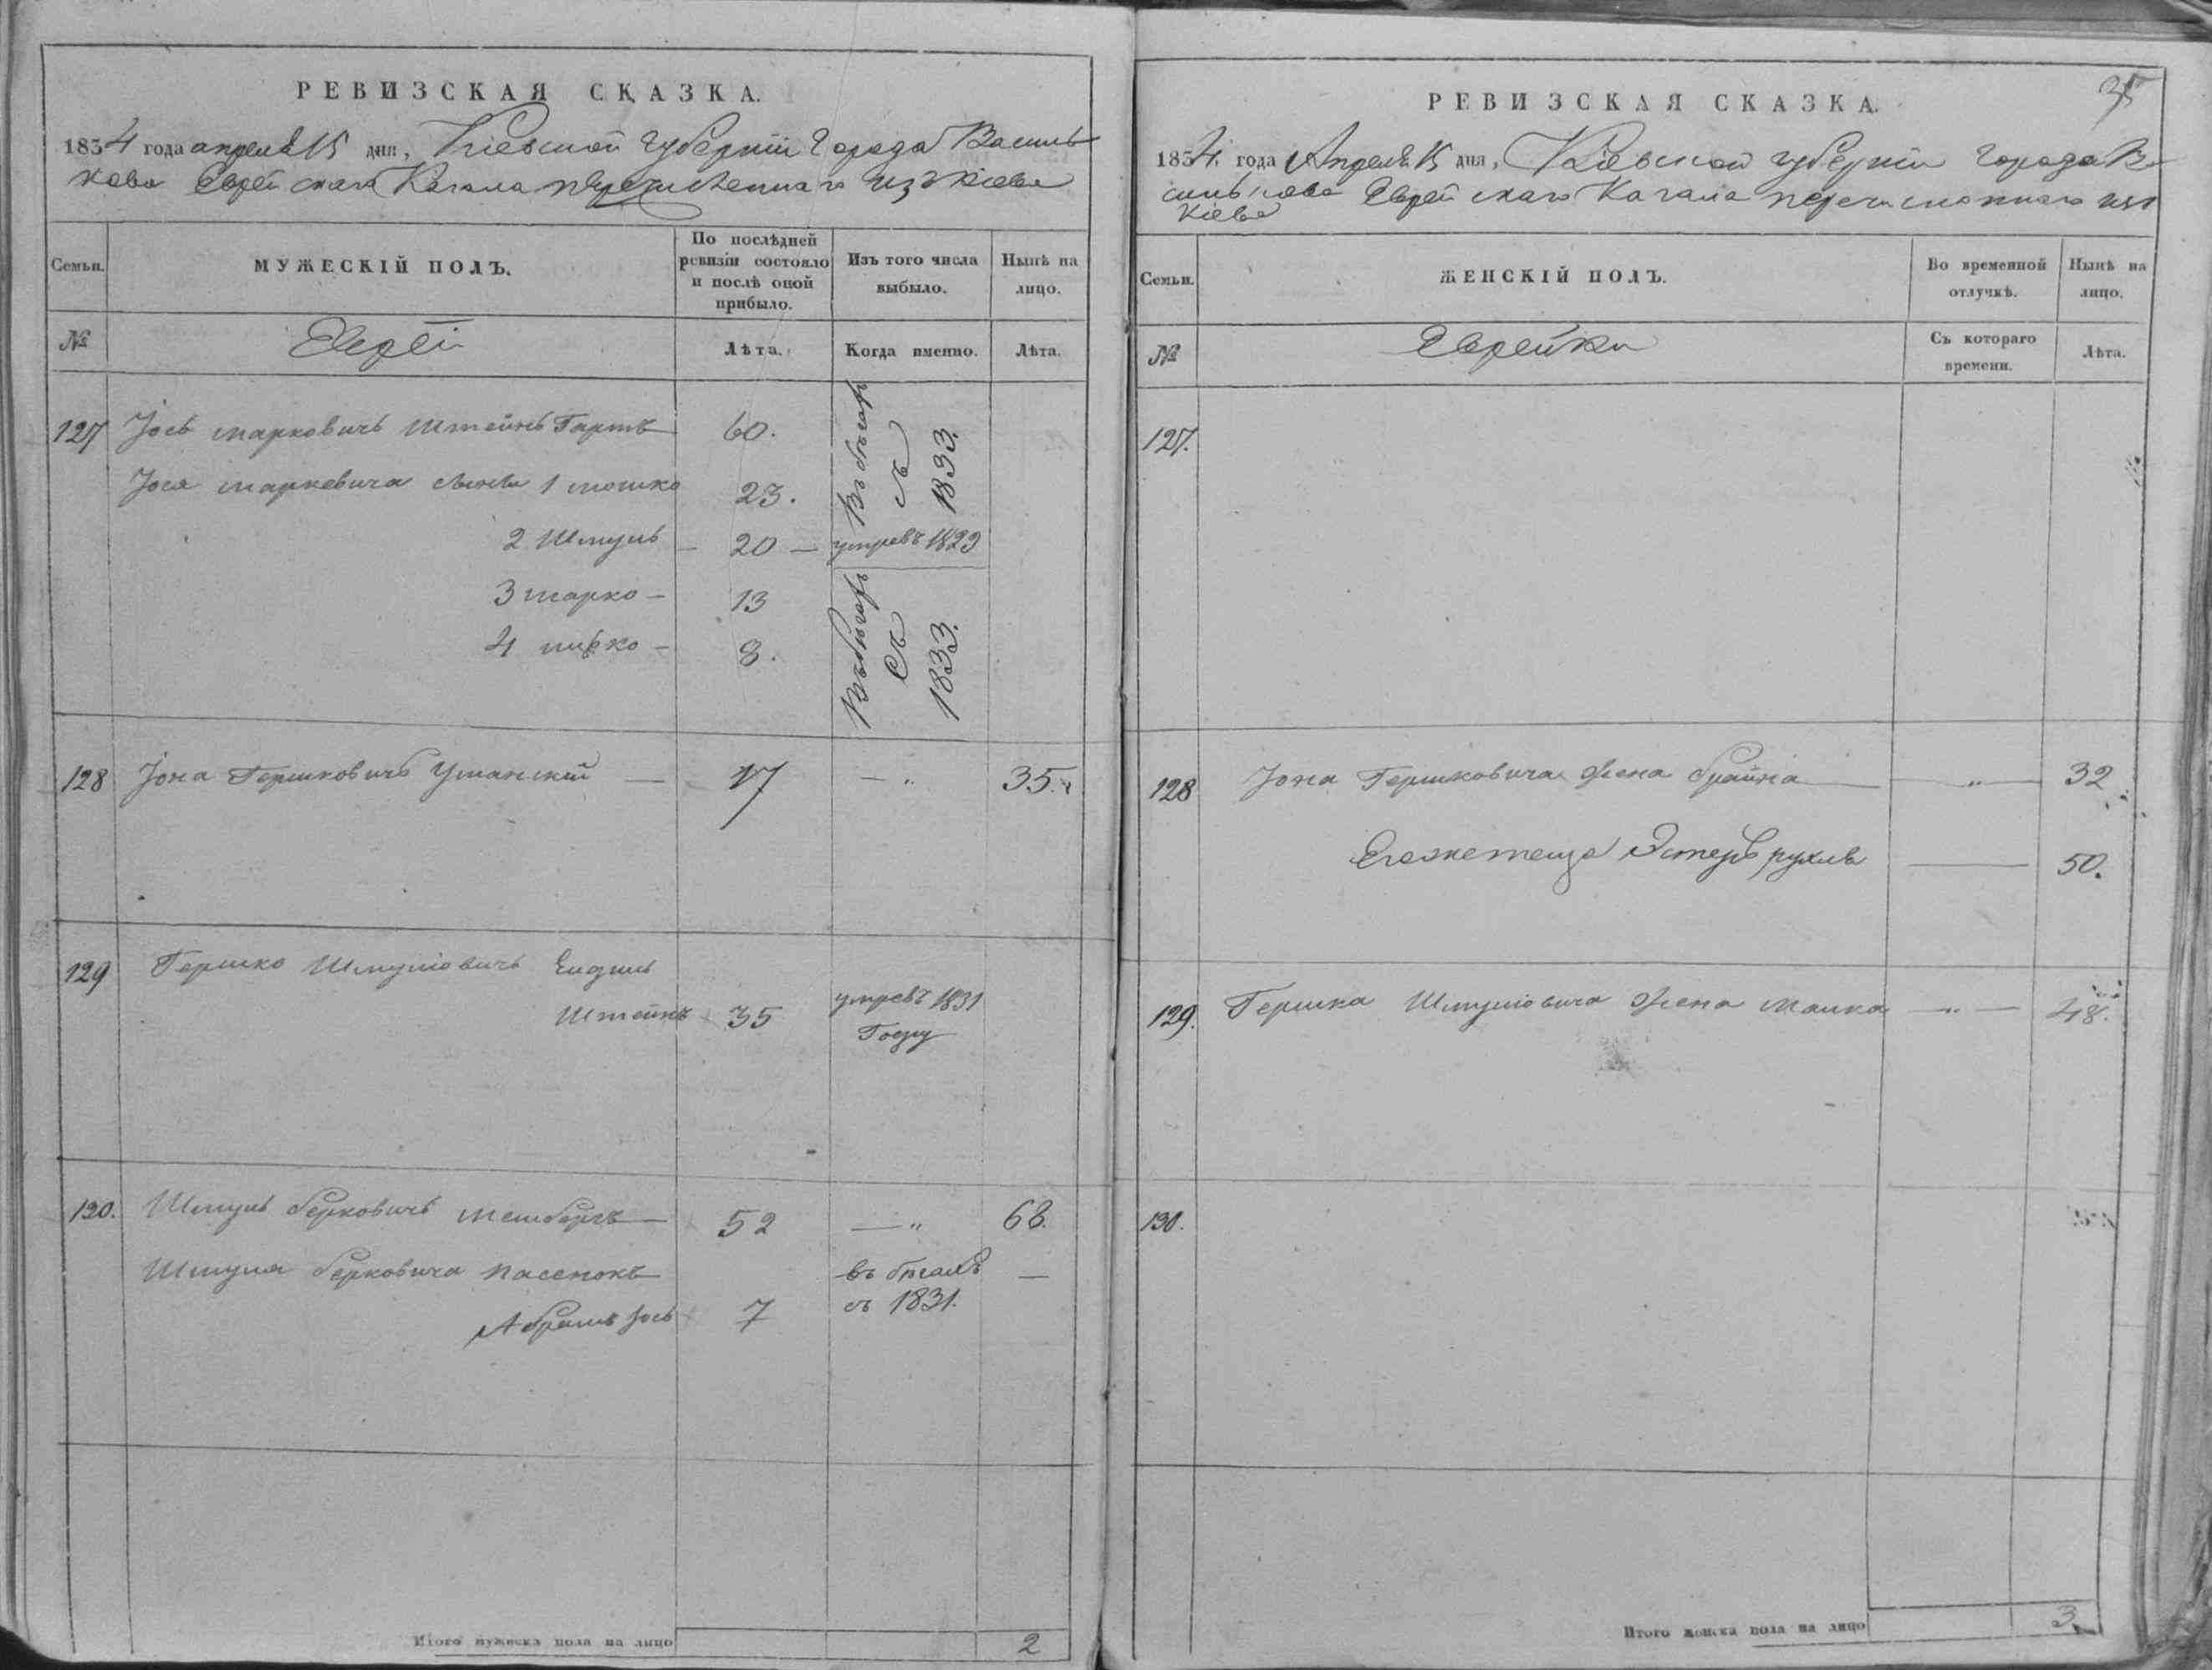 РЕВИЗСКАЯ СКАЗКА.
1834 года апреля 15 дня, Кіевской губерніи города Василь
кова Еврейскаго Кагала перечисленнаго изъ Кіева
Семьи.
МУЖЕСКІЙ ПОЛЪ.
По послѣдней
ревизіи состояло
и послѣ оной
прибыло.
Изъ того числа
выбыло.
Нынѣ на
лицо.
№
Евреи
Лѣта.
Когда именно.
Лѣта.
127 Іось Марковичъ Штейнъ Гартъ 60.
Въ бѣгахъ
съ
1833.
Іося Марковича сынъ 1 Мошко 23.
2 Шмуль — 20 — умревъ 1829
3 Марко — 13
Въ бѣгахъ
съ
1833.
4 — 8.
128 Іона Гершковичъ Уманскій — 17 — " 35.
129 Гершко Шмуліовичъ
Штейнъ 35 умревъ 1831
Году
130. Шмуль Берковичъ — 52 — " 68.
Шмуля Берковича пасенокъ въ бѣгахъ —
Абрамъ Іось 7 съ 1831.
Итого мужеска пола на лицо 2
35
РЕВИЗСКАЯ СКАЗКА.
1834. года Апреля 15 дня, Кіевской губерніи города Ва
силькова Еврейскаго Кагала перечисленнаго изъ
Кіева
Семьи.
ЖЕНСКІЙ ПОЛЪ.
Во временной
отлучкѣ.
Нынѣ на
лицо.
№
Еврейки
Съ котораго
времени.
Лѣта.
127.
128 Іона Гершковича жена Брайна — " — 32
Его же теща Эстеръ Рухля — 50.
129. Гершка Шмуліовича жена Малка — " — 48.
130.
Итого женска пола на лицо 3